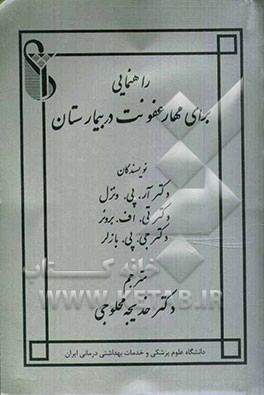 راهنمایی
برای مهار عفونت در بیمارستان
نویسندگان
دکتر آر. پی. ونزل
دکتر تی. اف. بروئر
دکتر جی. پی. باتزلر
مترجم
دکتر خدیجه محلوجی
دانشگاه علوم پزشکی و خدمات بهداشتی درمانی ایران
خانه کتاب
WWW.KETAB.IR